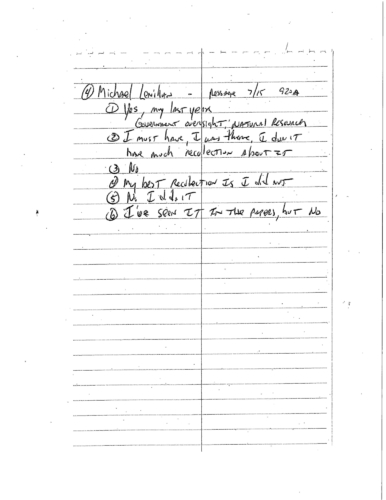 ④ Michael Lenihan - message 7/15 920A
① Yes my last year
Government oversight, Natural Resources
② I must have, I was there, I don't
have much recollection about it
③ No
④ My best recollection is I did not
⑤ No I didn't
⑥ I've seen it in the papers, but No